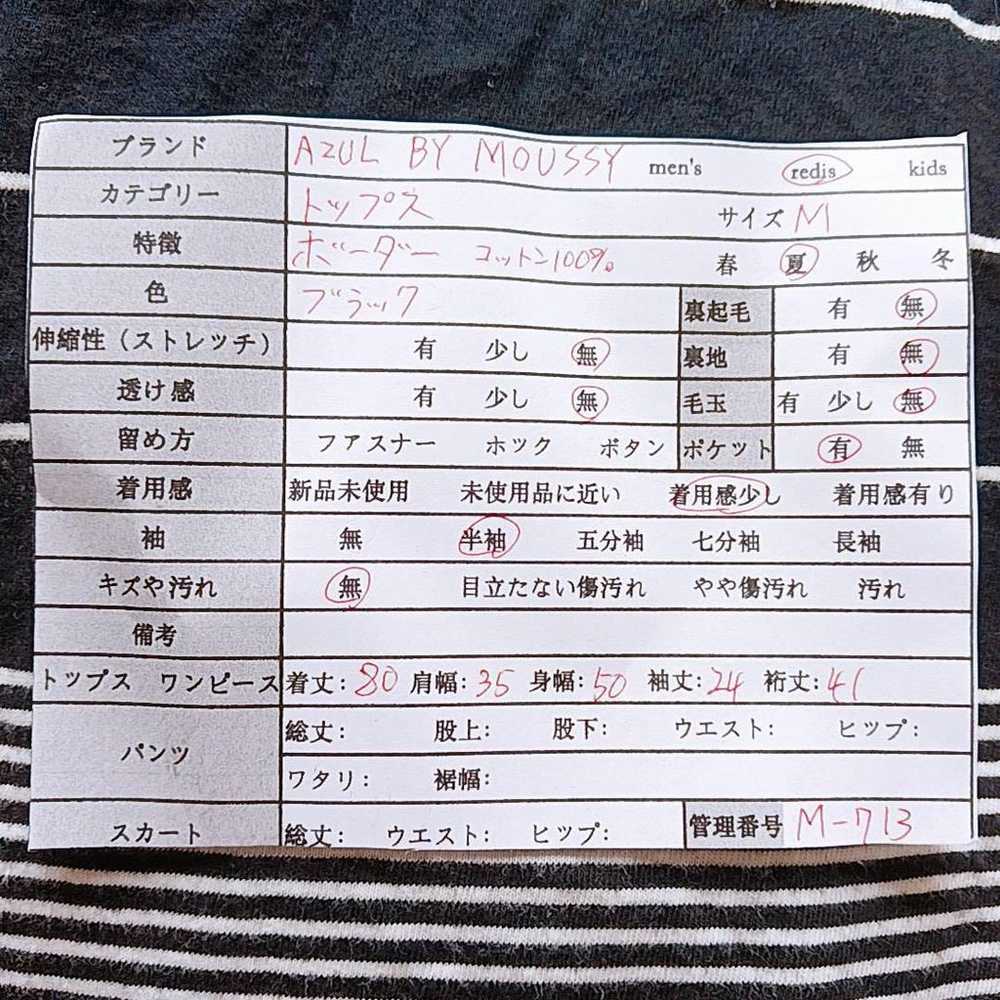 ブランド AZUL BY MOUSSY men's redis kids
カテゴリー トップス サイズ M
特徴 ボーダー コットン100% 春 夏 秋 冬
色 ブラック 裏起毛 有 無
伸縮性（ストレッチ） 有 少し 無 裏地 有 無
透け感 有 少し 無 毛玉 有 少し 無
留め方 ファスナー ホック ボタン ポケット 有 無
着用感 新品未使用 未使用品に近い 着用感少し 着用感有り
袖 無 半袖 五分袖 七分袖 長袖
キズや汚れ 無 目立たない傷汚れ やや傷汚れ 汚れ
備考
トップス ワンピース 着丈: 80 肩幅: 35 身幅: 50 袖丈: 24 裄丈: 41
パンツ 総丈: 股上: 股下: ウエスト: ヒップ:
ワタリ: 裾幅:
スカート 総丈: ウエスト: ヒップ: 管理番号 M-713